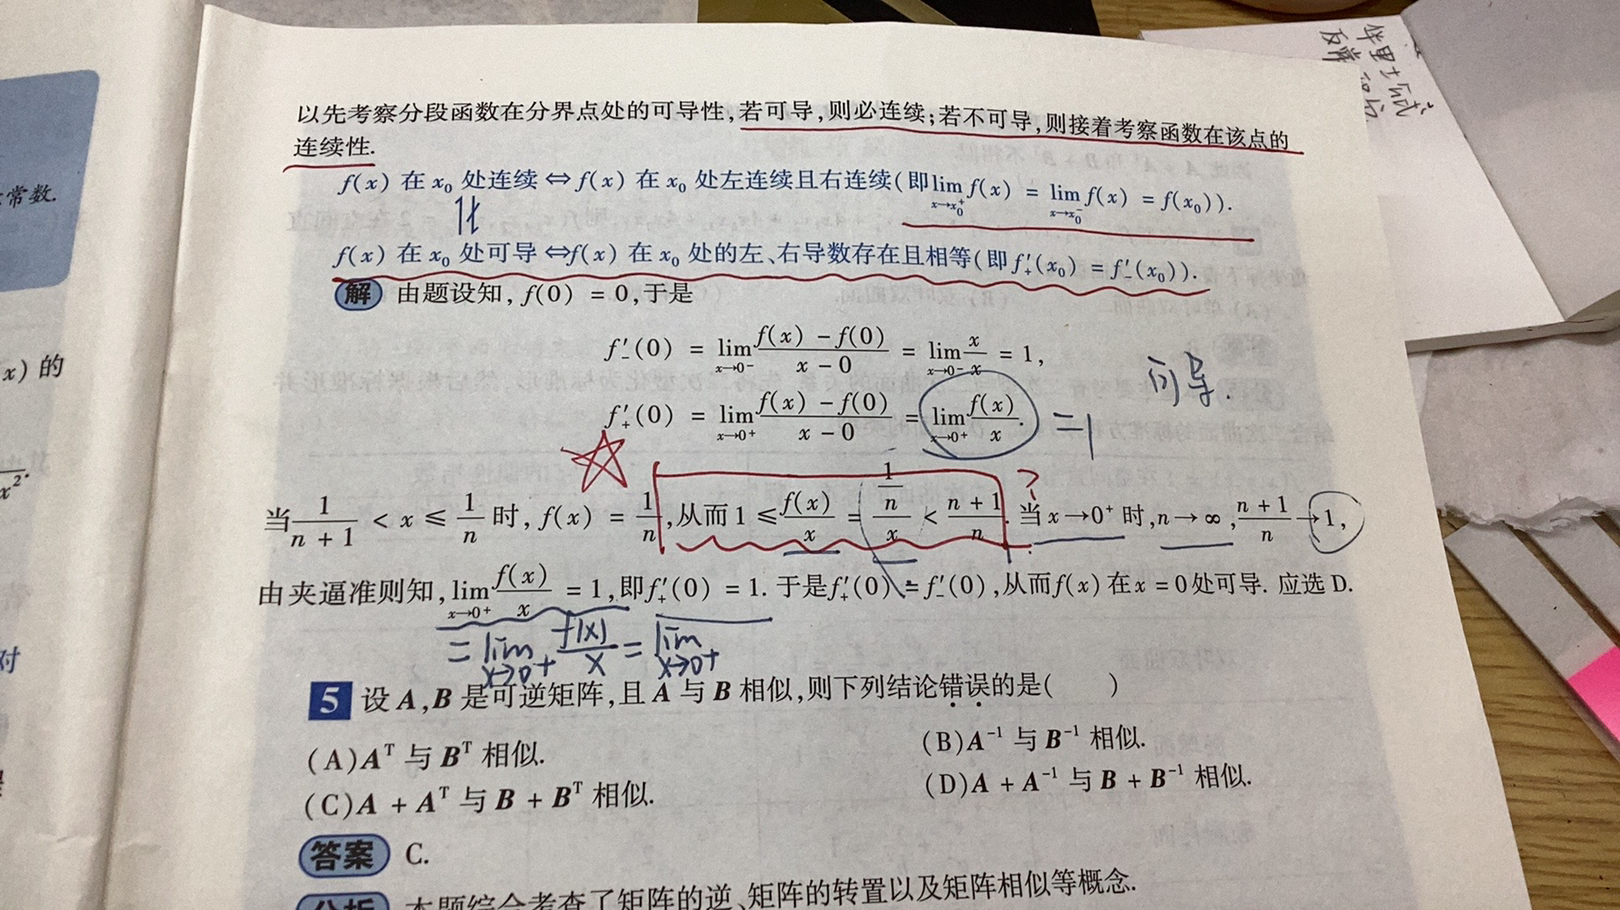 以先考察分段函数在分界点处的可导性,若可导,则必连续;若不可导,则接着考察函数在该点的
连续性.
f(x) 在 x₀ 处连续 ⇔ f(x) 在 x₀ 处左连续且右连续(即 lim_{x→x₀⁺} f(x) = lim_{x→x₀⁻} f(x) = f(x₀)).
f(x) 在 x₀ 处可导 ⇔ f(x) 在 x₀ 处的左、右导数存在且相等(即 f′₊(x₀) = f′₋(x₀)).
解 由题设知, f(0) = 0,于是
f′₋(0) = lim_{x→0⁻} (f(x) − f(0))/(x − 0) = lim_{x→0⁻} x/x = 1,
f′₊(0) = lim_{x→0⁺} (f(x) − f(0))/(x − 0) = lim_{x→0⁺} f(x)/x. = 1
可导.
当 1/(n + 1) < x ≤ 1/n 时, f(x) = 1/n,从而 1 ≤ f(x)/x = (1/n)/x < (n + 1)/n. ? 当 x→0⁺ 时,n→∞,(n + 1)/n →1,
由夹逼准则知, lim_{x→0⁺} f(x)/x = 1,即 f′₊(0) = 1. 于是 f′₊(0) = f′₋(0),从而 f(x) 在 x = 0 处可导. 应选 D.
= lim_{x→0⁺} f(x)/x = lim_{x→0⁺}
5 设 A,B 是可逆矩阵,且 A 与 B 相似,则下列结论错误的是( )
(A)Aᵀ 与 Bᵀ 相似.
(B)A⁻¹ 与 B⁻¹ 相似.
(C)A + Aᵀ 与 B + Bᵀ 相似.
(D)A + A⁻¹ 与 B + B⁻¹ 相似.
答案 C.
分析 本题综合考查了矩阵的逆、矩阵的转置以及矩阵相似等概念.
常数.
x) 的
x².
对